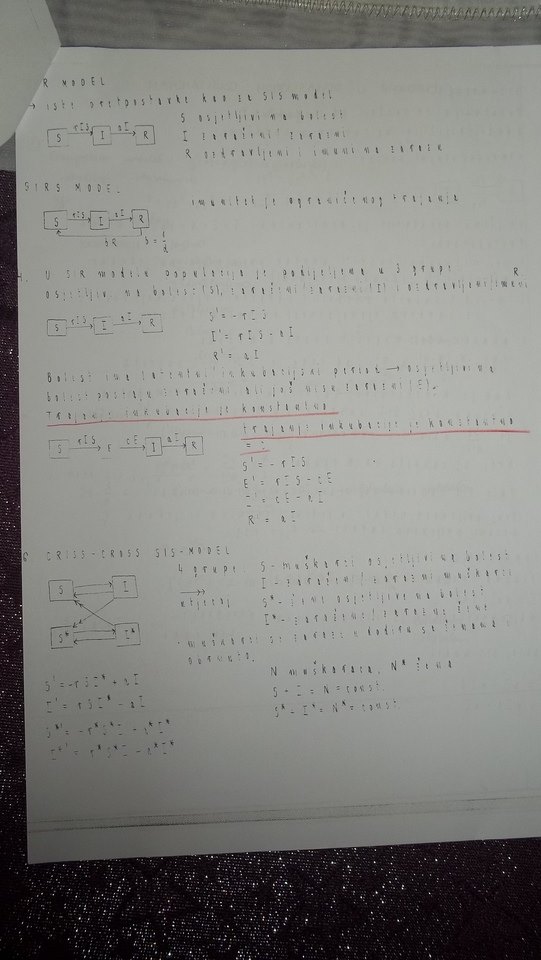 R MODEL
→ iste pretpostavke kao za SIS model
S osjetljivi na bolest
S rIS I aI R
I zaraženi / zarazni
R ozdravljeni i imuni na zarazu
SIRS MODEL
imunitet je ograničenog trajanja
S rIS I aI R
bR b = 1/d
U SIR modelu populacija je podijeljena u 3 grupe R.
osjetljivi na bolest (S), zaraženi/zarazni (I) i ozdravljeni/imuni
S' = -rIS
S rIS I aI R
I' = rIS - aI
R' = aI
Bolest ima latentni/inkubacijski period → osjetljivi na
bolest postaju zaraženi ali još nisu zarazni (E).
Trajanje inkubacije je konstantno
trajanje inkubacije je konstantno
= :
S rIS E cE I aI R
S' = -rIS
E' = rIS - cE
I' = cE - aI
R' = aI
6 CRISS-CROSS SIS-MODEL
4 grupe: S - muškarci osjetljivi na bolest
S I
I - zaraženi / zarazni muškarci
→→ S* - žene osjetljive na bolest
utjecaj I* - zaražene / zarazne žene
S* I*
muškarci se zaraze u dodiru sa ženama i
obrnuto.
N muškaraca, N* žena
S' = -rSI* + aI
S + I = N = const.
I' = rSI* - aI
S* + I* = N* = const.
S*' = -r*S*I + a*I*
I*' = r*S*I - a*I*